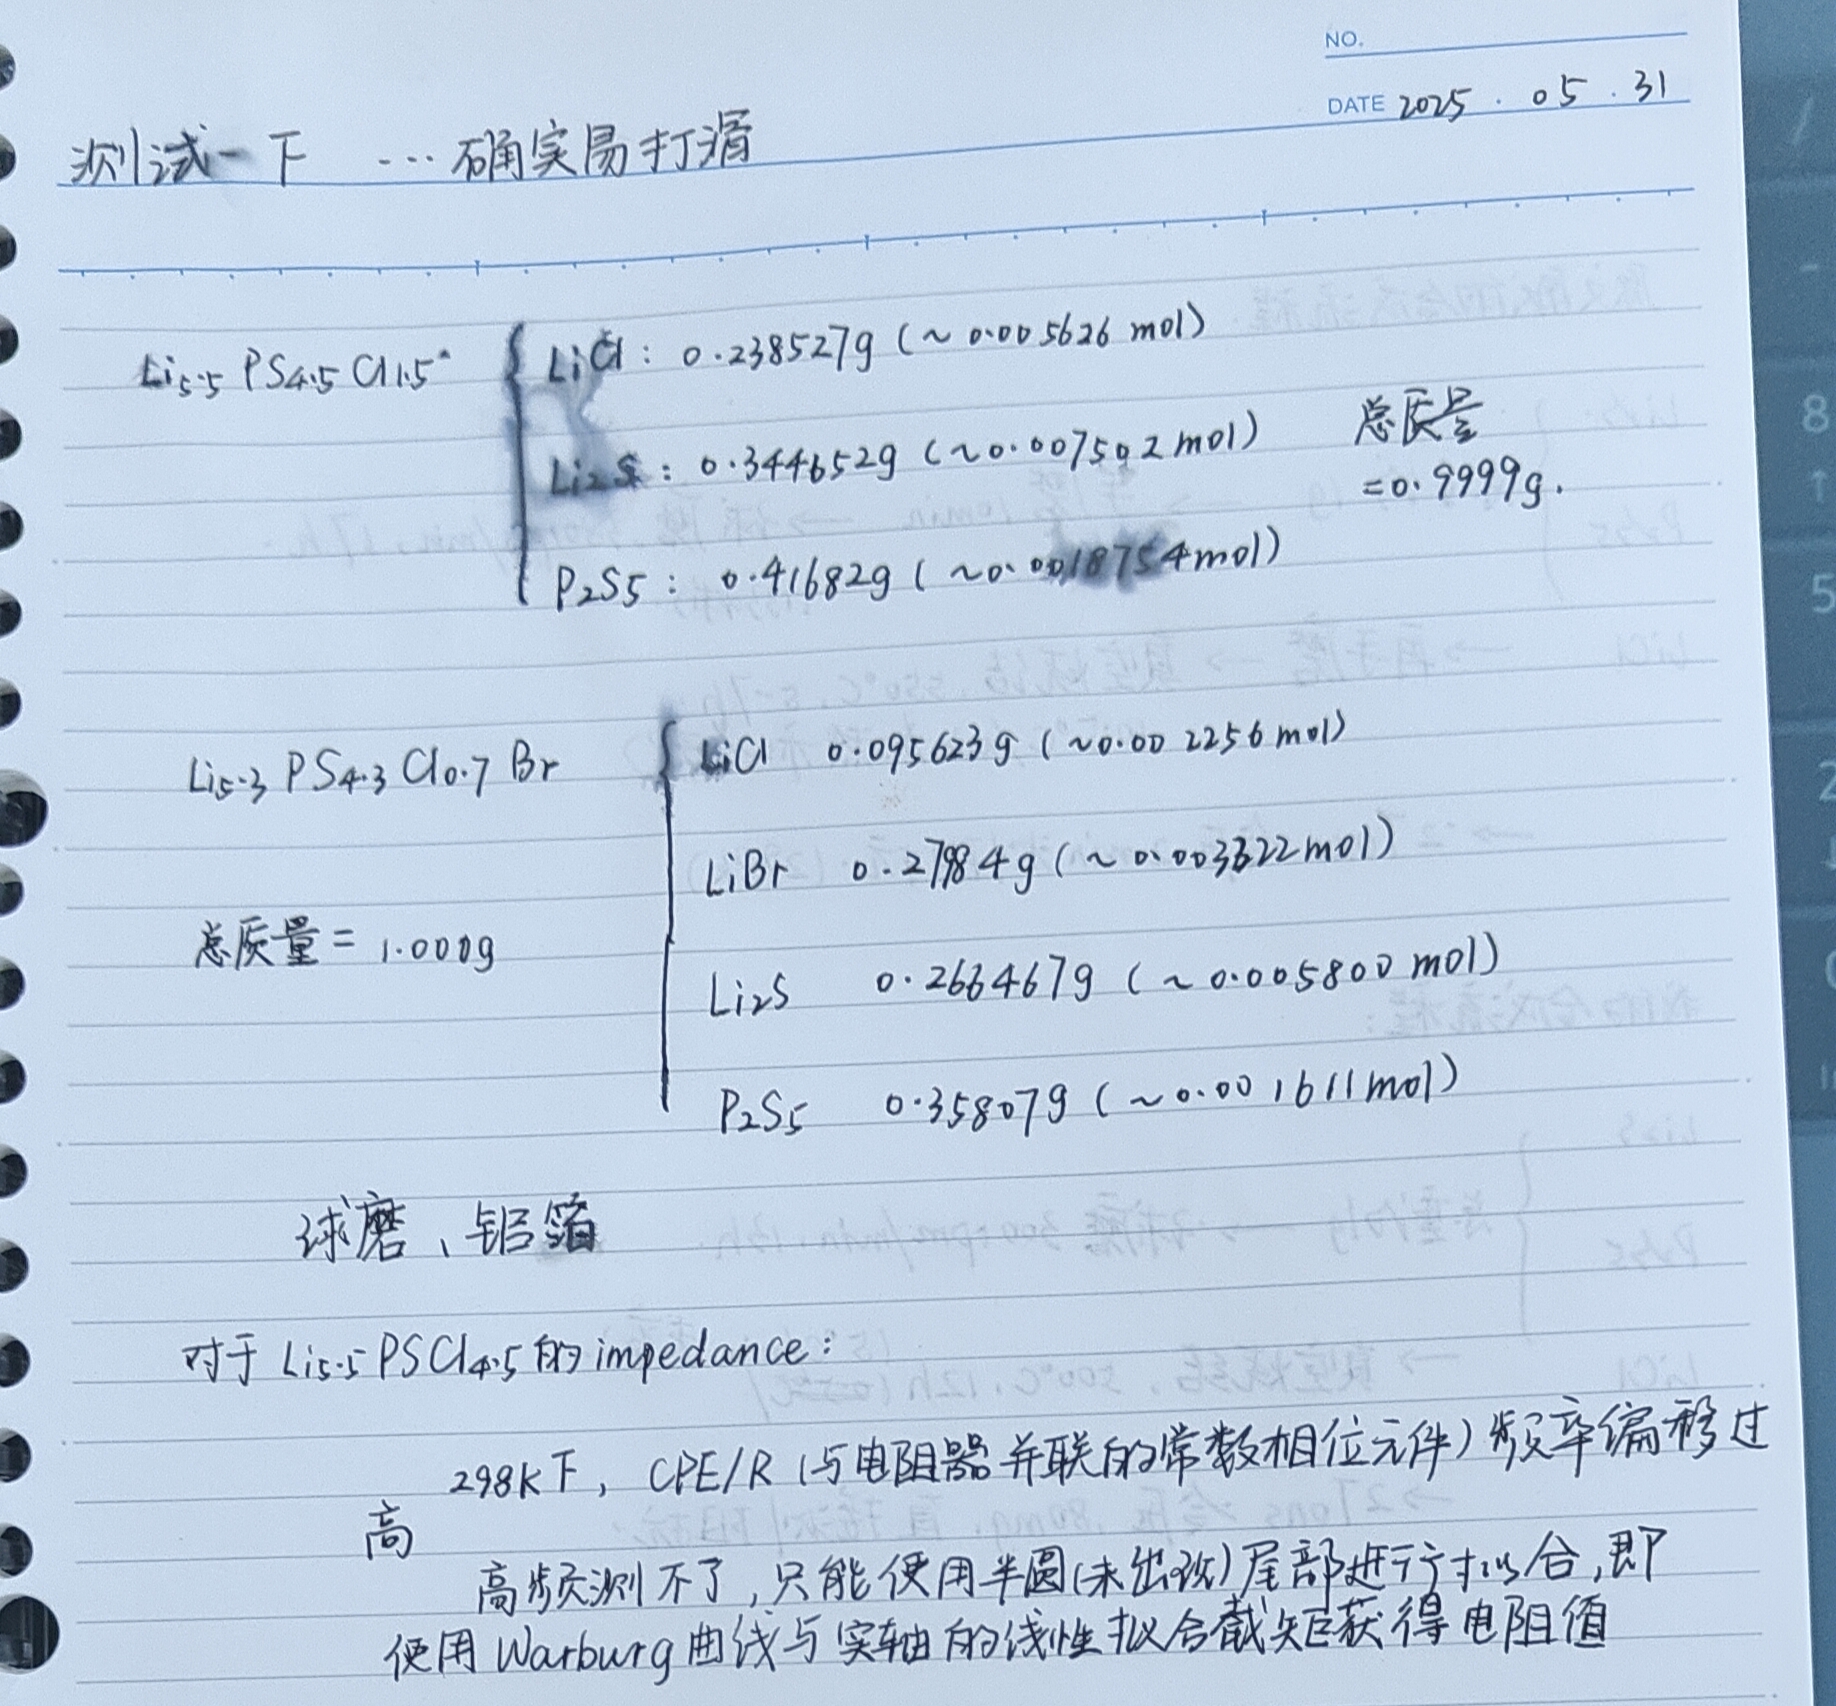 NO.
DATE 2025 . 05 . 31
测试一下 ... 确实易打滑
Li5.5 PS4.5 Cl1.5
LiCl : 0.238527g (~0.005626 mol)
Li2S : 0.344652g (~0.007502 mol)
总质量
=0.9999g.
P2S5 : 0.41682g (~0.0018754mol)
Li5.3 PS4.3 Cl0.7 Br
LiCl 0.095623g (~0.002256 mol)
LiBr 0.27984g (~0.003222mol)
总质量 = 1.000g
Li2S 0.266467g (~0.005800 mol)
P2S5 0.35807g (~0.001611mol)
球磨、铝箔
对于 Li5.5 PSCl4.5 的 impedance:
298K下, CPE/R (与电阻器并联的常数相位元件) 频率偏移过
高
高频测不了,只能使用半圆(未出现)尾部进行拟合,即
使用 Warburg 曲线与实轴的线性拟合截矩获得电阻值
8
5
2